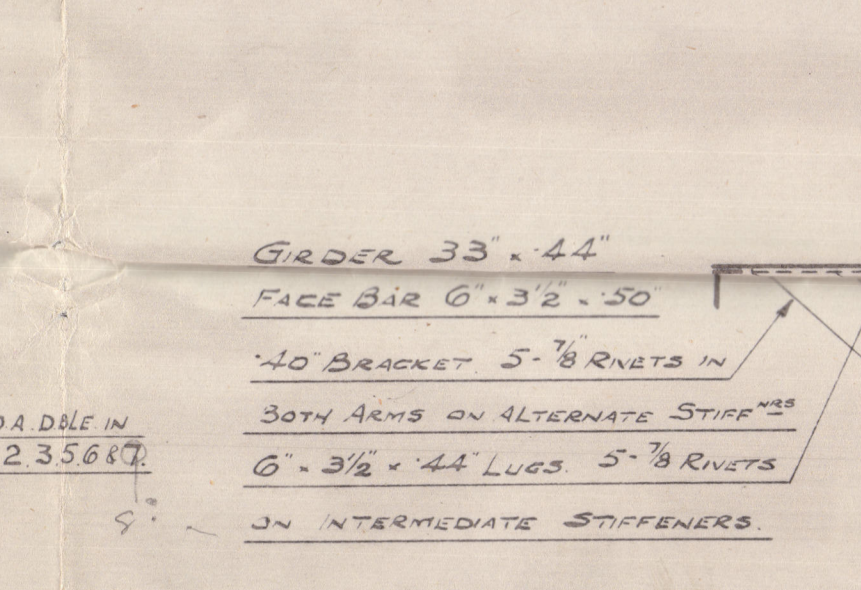 GIRDER 33" × ·44"
FACE BAR 6" × 3½" × ·50"
·40" BRACKET. 5-⅞" RIVETS IN
BOTH ARMS ON ALTERNATE STIFFNRS
6" × 3½" × ·44" LUGS. 5-⅞ RIVETS
ON INTERMEDIATE STIFFENERS.
O.A. DBLE IN
2.3.5.6 8 7.
8